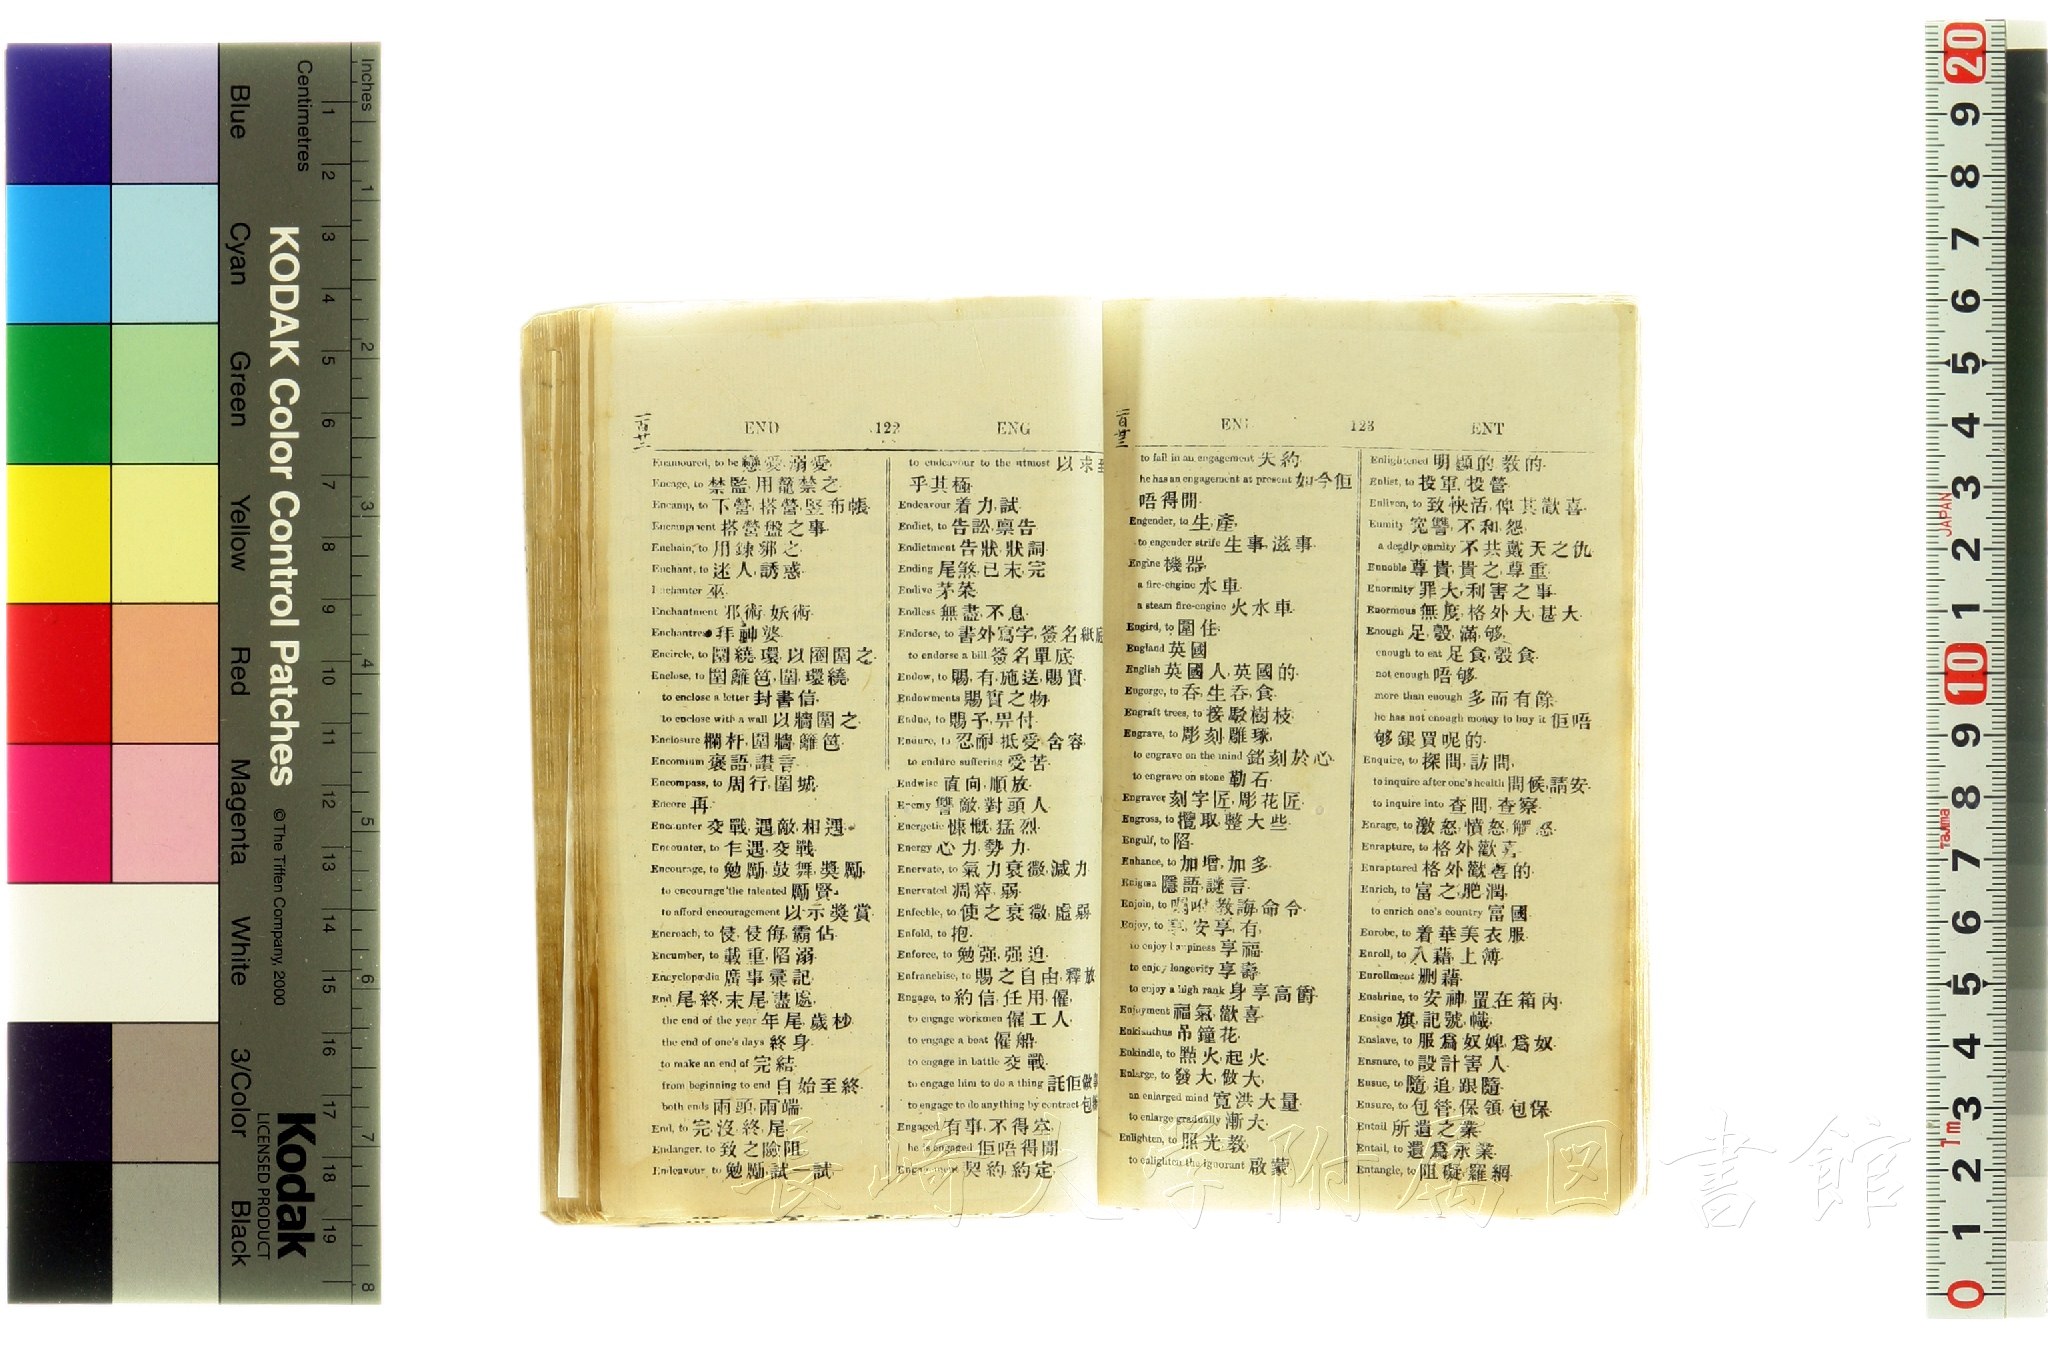 Inches
Centimetres
Blue
Cyan
Green
Yellow
Red
Magenta
White
3/Color
Black
KODAK Color Control Patches
© The Tiffen Company, 2000
Kodak
LICENSED PRODUCT
一百廿二
END 122 ENG
Enamoured, to be 戀愛,溺愛
Encage, to 禁監,用籠禁之
Encamp, to 下營,搭營,竪布帳
Encampment 搭營盤之事
Enchain, to 用鍊綁之
Enchant, to 迷人,誘惑
Enchanter 巫
Enchantment 邪術,妖術
Enchantress 拜神婆
Encircle, to 圍繞,環,以圈圍之
Enclose, to 圍籬笆,圍,環繞
to enclose a letter 封書信
to enclose with a wall 以牆圍之
Enclosure 欄杆,圍牆,籬笆
Encomium 褒語,讚言
Encompass, to 周行,圍城
Encore 再
Encounter 交戰,遇敵,相遇
Encounter, to 乍遇,交戰
Encourage, to 勉勵,鼓舞,奬勵
to encourage the talented 勵賢
to afford encouragement 以示奬賞
Encroach, to 侵,侵侮,霸佔
Encumber, to 載重,陷溺
Encyclopædia 廣事彙記
End 尾,終,末尾,盡處
the end of the year 年尾,歲杪
the end of one's days 終身
to make an end of 完結
from beginning to end 自始至終
both ends 兩頭,兩端
End, to 完,沒,終,尾
Endanger, to 致之險阻
Endeavour, to 勉勵,試一試
to endeavour to the utmost 以求至
乎其極
Endeavour 着力,試
Endict, to 告訟,稟告
Endictment 告狀,狀詞
Ending 尾煞,已末,完
Endive 茅菜
Endless 無盡,不息
Endorse, to 書外寫字,簽名紙底
to endorse a bill 簽名單底
Endow, to 賜,有,施送,賜賞
Endowments 賜賞之物
Endue, to 賜予,畀付
Endure, to 忍耐,抵受,舍容
to endure suffering 受苦
Endwise 直向,順放
Enemy 讐敵,對頭人
Energetic 慷慨,猛烈
Energy 心力,勢力
Enervate, to 氣力衰微,減力
Enervated 凋瘁,弱
Enfeeble, to 使之衰微,虛弱
Enfold, to 抱
Enforce, to 勉强,强迫
Enfranchise, to 賜之自由,釋放
Engage, to 約信,任用,僱
to engage workmen 僱工人
to engage a boat 僱船
to engage in battle 交戰
to engage him to do a thing 託佢做
to engage to do anything by contract 包
Engaged 有事,不得空
he is engaged 佢唔得閒
Engagement 契約,約定
一百廿三
123 ENT
to fail in an engagement 失約
he has an engagement at present 如今佢
唔得閒
Engender, to 生,產
to engender strife 生事,滋事
Engine 機器
a fire-engine 水車
a steam fire-engine 火水車
Engird, to 圍住
England 英國
English 英國人,英國的
Engorge, to 吞,生吞,食
Engraft trees, to 接駁樹枝
Engrave, to 彫刻,雕琢
to engrave on the mind 銘刻於心
to engrave on stone 勒石
Engraver 刻字匠,彫花匠
Engross, to 攬取,整大些
Engulf, to 陷
Enhance, to 加增,加多
Enigma 隱語,謎言
Enjoin, to 教誨,命令
Enjoy, to 享,安享,有
to enjoy happiness 享福
to enjoy longevity 享壽
to enjoy a high rank 身享高爵
Enjoyment 福氣,歡喜
Enkianthus 吊鐘花
Enkindle, to 點火,起火
Enlarge, to 發大,做大
an enlarged mind 寬洪大量
to enlarge gradually 漸大
Enlighten, to 照光,教
to enlighten the ignorant 啟蒙
Enlightened 明顯的,教的
Enlist, to 投軍,投營
Enliven, to 致快活,俾其歡喜
Enmity 寃讐,不和,怨
a deadly enmity 不共戴天之仇
Ennoble 尊貴,貴之,尊重
Enormity 罪大,利害之事
Enormous 無度,格外大,甚大
Enough 足,彀,滿,够
enough to eat 足食,彀食
not enough 唔够
more than enough 多而有餘
he has not enough money to buy it 佢唔
够銀買呢的
Enquire, to 探問,訪問
to inquire after one's health 問候,請安
to inquire into 查問,查察
Enrage, to 激怒,憤怒,觸怒
Enrapture, to 格外歡喜
Enraptured 格外歡喜的
Enrich, to 富之,肥潤
to enrich one's country 富國
Enrobe, to 着華美衣服
Enroll, to 入藉,上簿
Enrollment 册藉
Enshrine, to 安神,置在箱內
Ensign 旗,記號,幟
Enslave, to 服爲奴婢,爲奴
Ensnare, to 設計害人
Ensue, to 隨,追,跟隨
Ensure, to 包管,保領,包保
Entail 所遺之業
Entail, to 遺爲永業
Entangle, to 阻礙,羅網
長崎大学附属図書館
JAPAN
Tajima
1m